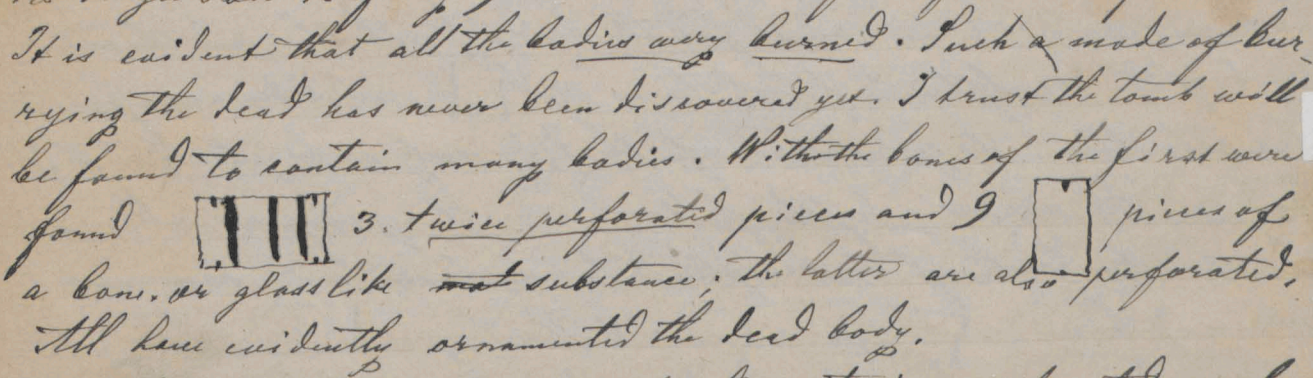 It is evident that all the bodies wery burned. Such a mode of bur-
rying the dead has never been discovered yet. I trust the tomb will
be found to contain many bodies. With the bones of the first were
found 3. twice perforated pieces and 9 pieces of
a bone. or glasslike mat substance; the latter are also perforated.
All have evidently ornamented the dead body.